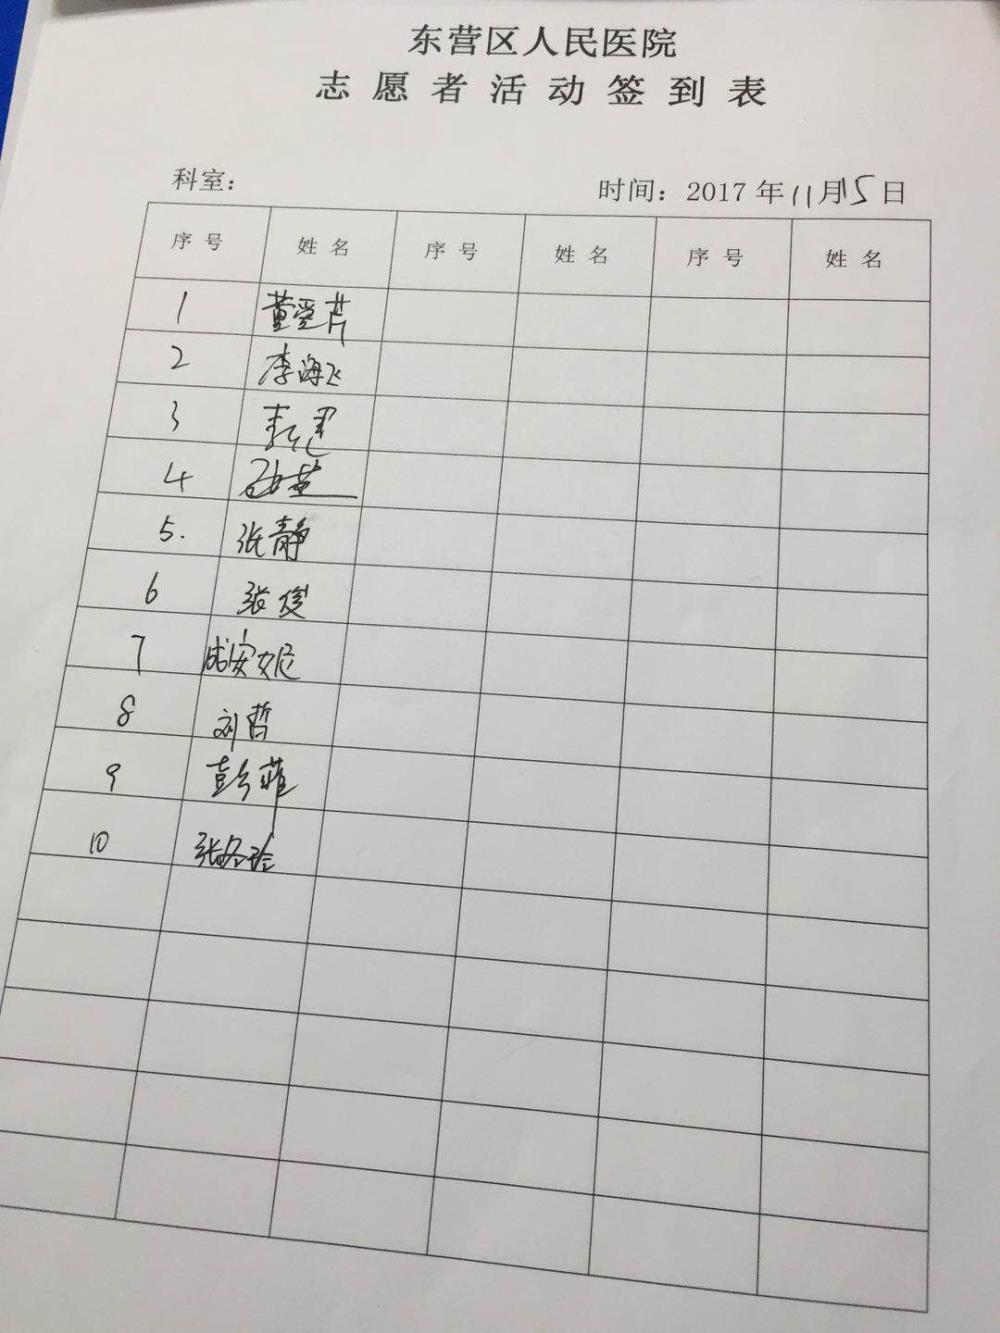 东营区人民医院
志愿者活动签到表
科室： 时间：2017年11月15日
序号 姓名 序号 姓名 序号 姓名
1 董爱芹
2 李海飞
3 李
4
5. 张静
6 张俊
7 成安妮
8 刘哲
9 彭菲
10 张冬玲